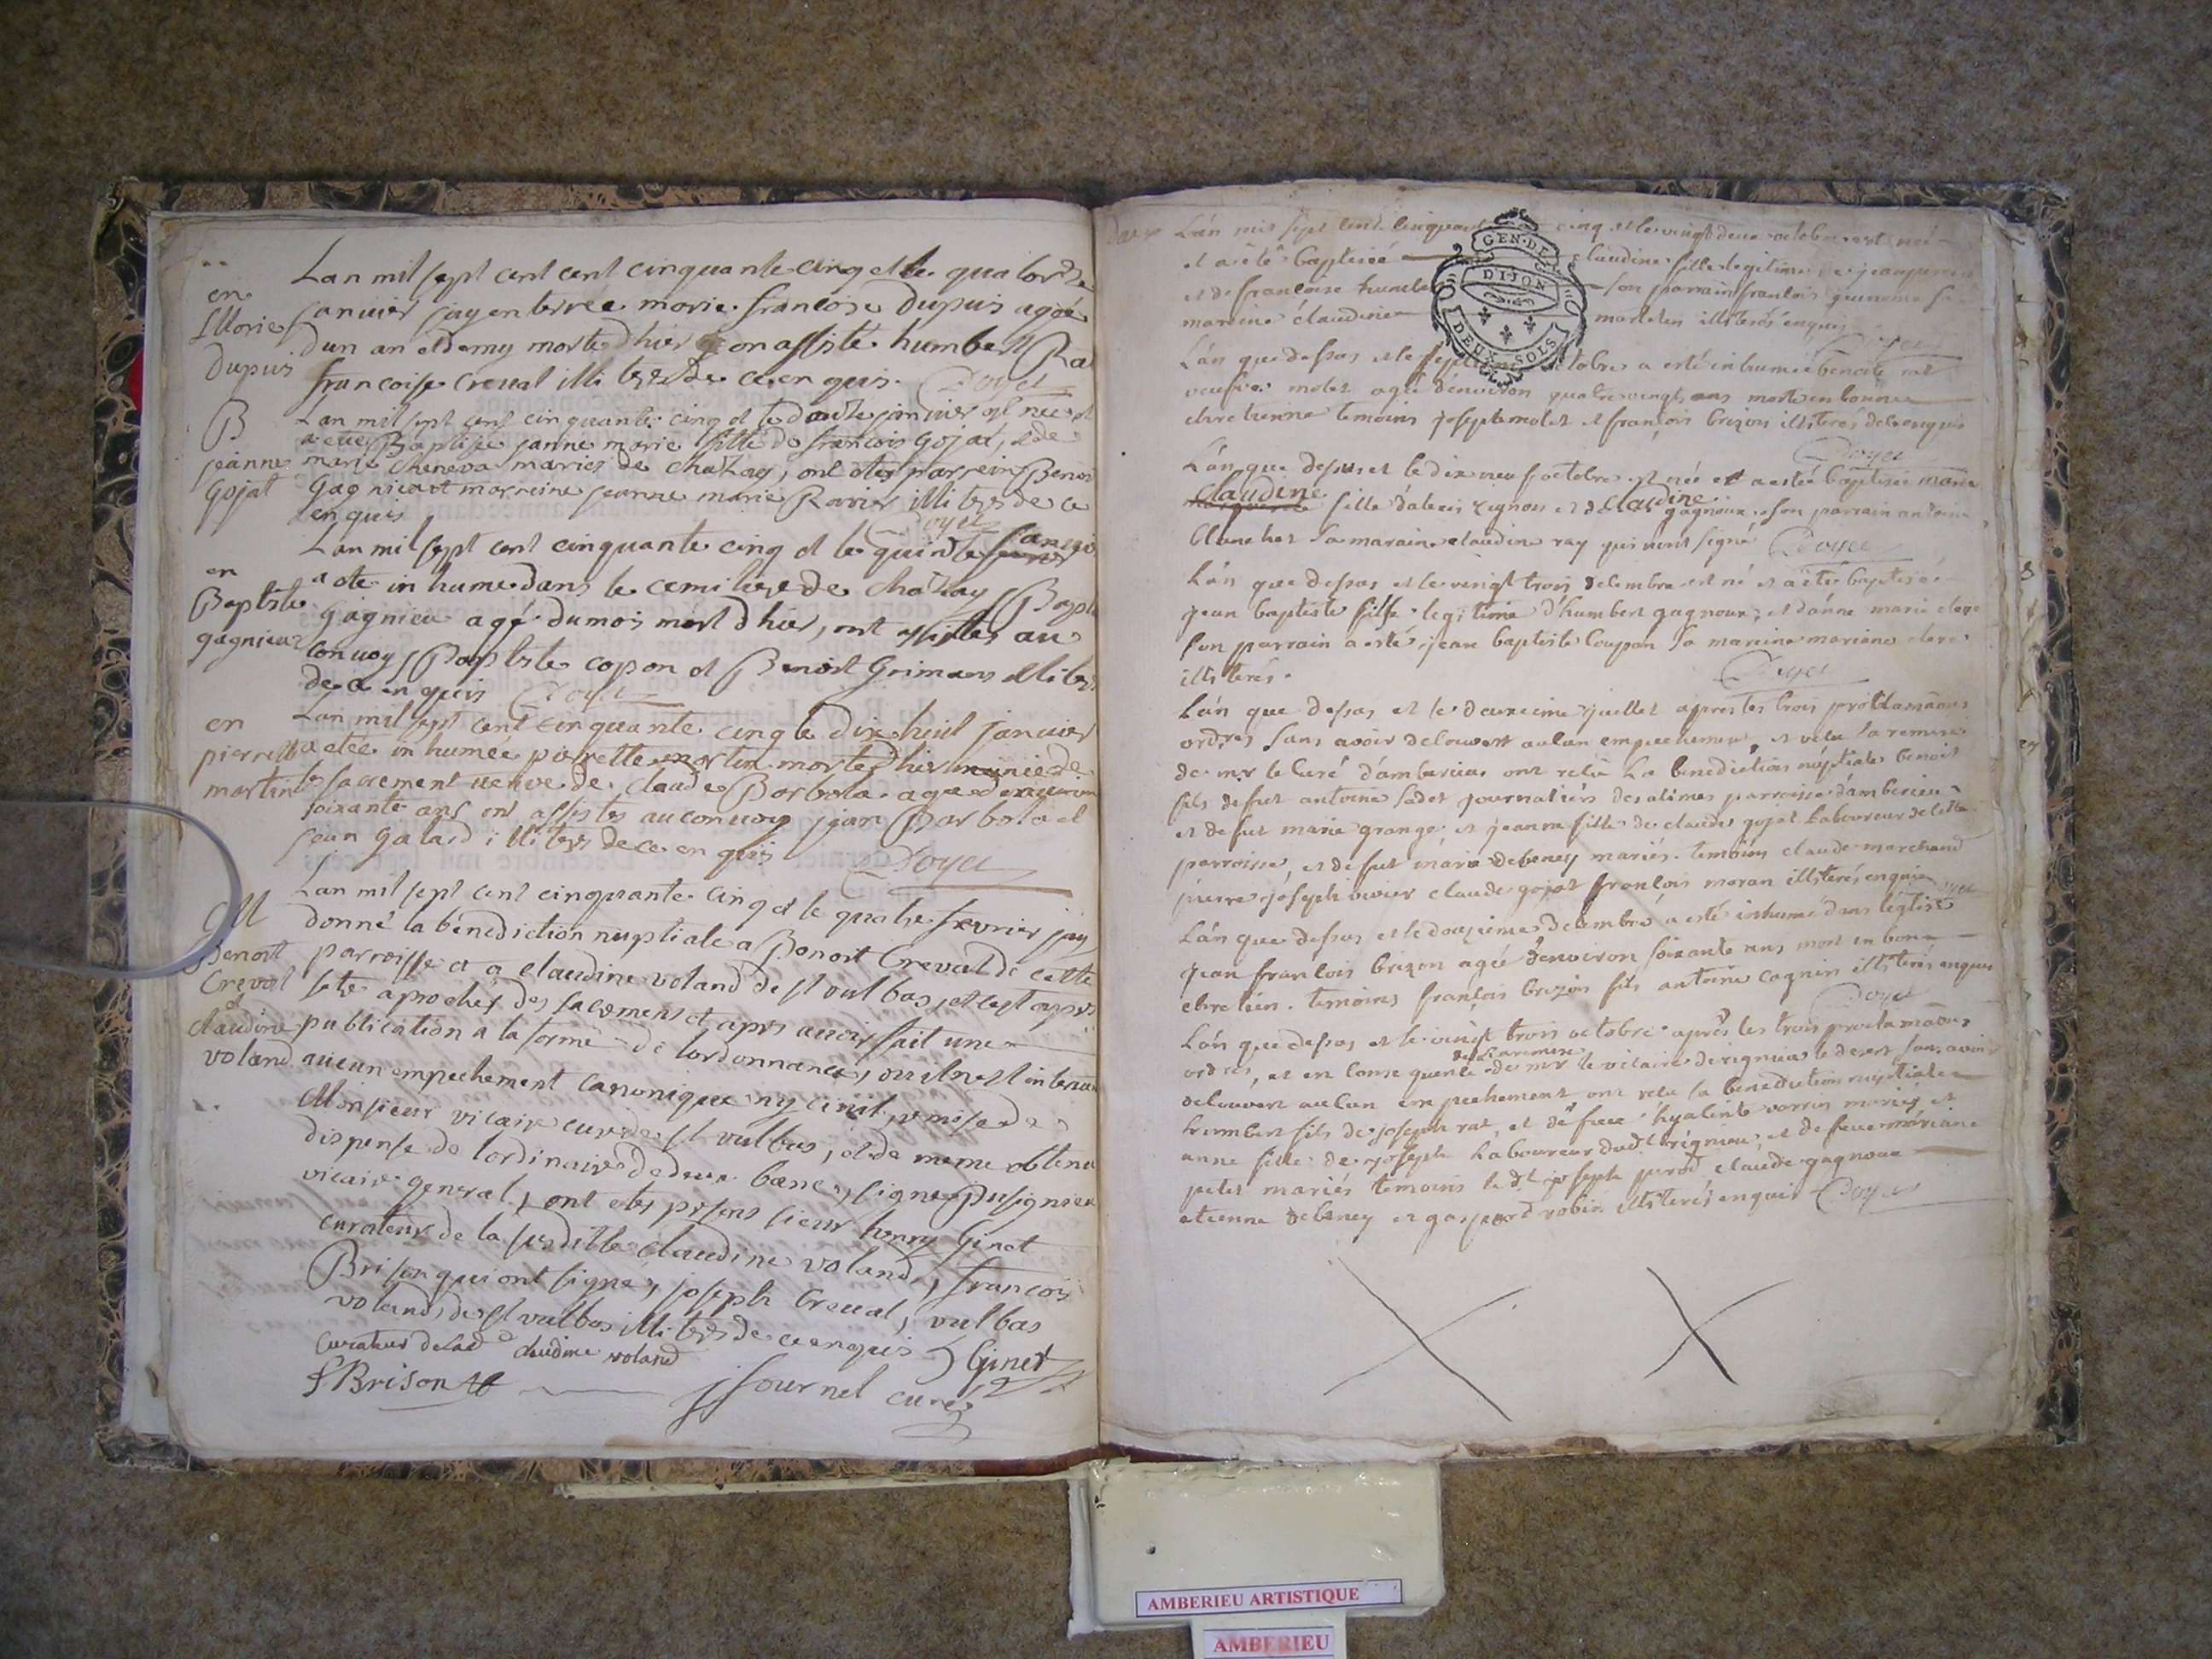 Lan mil sept cent cent cinquante cinq et le quatorze
en
Marie
Dupuis
janvier jay enterrée marie francoise Dupuis agée
dun an et demy morte dhier on assisté humbert Rat
francoise Creval illiteres de ce en quis. Doyet
B
jeanne
Gojat
Lan mil sept cent cinquante cinq et le douze janvier est nee et
a etee Baptisee janne marie fille de francois Gojat, et de
marie Cheneva mariez de Chazay, ont etes parrein Benoi
Gagnieu et marreine jeanne marie Ravier illiteres de ce
enquis Doyet
Lan mil sept cent cinquante cinq et le quinze janvier
en
Baptiste
gagnieu
a ete in humé dans le cemitiere de Chazay Bapti
gagnieu agé du mois mort dhier, ont assistes au
convoy Baptiste copon et Benoist Grimans illiteres
de ce en quis Doyet
en
pierrette
martin
Lan mil sept cent cinquante cinq le dix huit janvier
a etée in humée pierrette martin morte dhier munie de
les sacrement veuve de Claude Barbola agee denviron
soixante ans ont assistes au convoy jean Barbola et
jean Galard illiteres de ce en quis Doyet
M
Benoit
Creval
et
claudine
voland
Lan mil sept cent cinquante cinq et le quatre fevrier jay
donné la bénédiction nuptiale a Benoit Creval de cette
parroisse et a claudine voland de st vulbas, et cest apres
setre aprochez des sacremens et apres avoir fait une
publication a la forme de lordonnance, ou il nest intervenu
aucun empechement canonique ny civil, remise de
Monsieur vicaire curé de st vulbas, et de meme obtenu
dispense de lordinaire de deux bancs, signé Pusignieu
vicaire general, ont etes presens sieur henry Ginet
curateur de la susditte claudine voland, francois
Brison qui ont signé, joseph Creval, vulbas
voland, de st vulbas illiteres de ce enquis Ginet
curateur de lad claudine voland
f Brison
journel curé
Lán mil sept cent cinquante cinq et le vingt deux octobre est née
et a été baptisée claudine fille legitime de jean
et de francoise humbert son parrain francois
mareine claudine illiterés enquis
GEN. DE
DIJON
DEUX. SOLS
Doyet
Lán que dessus et le octobre a esté inhumée benoite rat
veufve molet agée denviron quatre vingt ans morte en bonne
chretienne temoins joseph molet et françois brizon illiterés de ce enquis
Doyet
Lán que dessus et le dix neuf octobre est née et a esté baptisée marie
Claudine fille dalexis et de Claudine gagnoux son parrain antoine
Clanchet sa maraine claudine ray qui nont signé Doyet
Lán que dessus et le vingt trois decembre est né et a été baptisé
jean baptiste fils legitime d'humbert gagnoux, et danne marie clere
son parrain a esté jean baptiste Coupon sa mareine mariane clere
illiterés. Doyet
Lán que dessus et le deuxeime juillet apres les trois proclamãons
ordres sans avoir decouvert aulcun empechement, et veu la remise
de mr le curé damberieu ont recu la benediction nuptiale benoit
fils de fut antoine sadet journaliers des alimes parroisse damberieu
et de fut marie grange et jeanne fille de claude gojat laboureur de cette
parroisse, et de fut marie debeney mariés. temoins claude marchand
pierre joseph claude gojat françois moran illiterés enquis Doyet
Lán que dessus et le douzieme decembre a esté inhumé dans leglise
jean francois brizon agé d'environ soixante ans mort en bon
chretien. temoins françois brizon fils antoine cagnin illiterés enquis
Doyet
Lán que dessus et le vingt trois octobre aprés les trois proclamãons
de la remise
ordres, et en consequence de mr le vicaire de rignieu le desert sans avoir
decouvert aulcun empechement ont recu la benediction nuptiale
humbert fils de joseph rat, et de feüe hyacinte mariés et
anne fille de joseph laboureur dudt rignieu, et de feue mariane
petet mariés temoins le dt joseph perod claude gagnoux
etienne debeney et gaspard robin illiterés enquis Doyet
AMBERIEU ARTISTIQUE
AMBERIEU